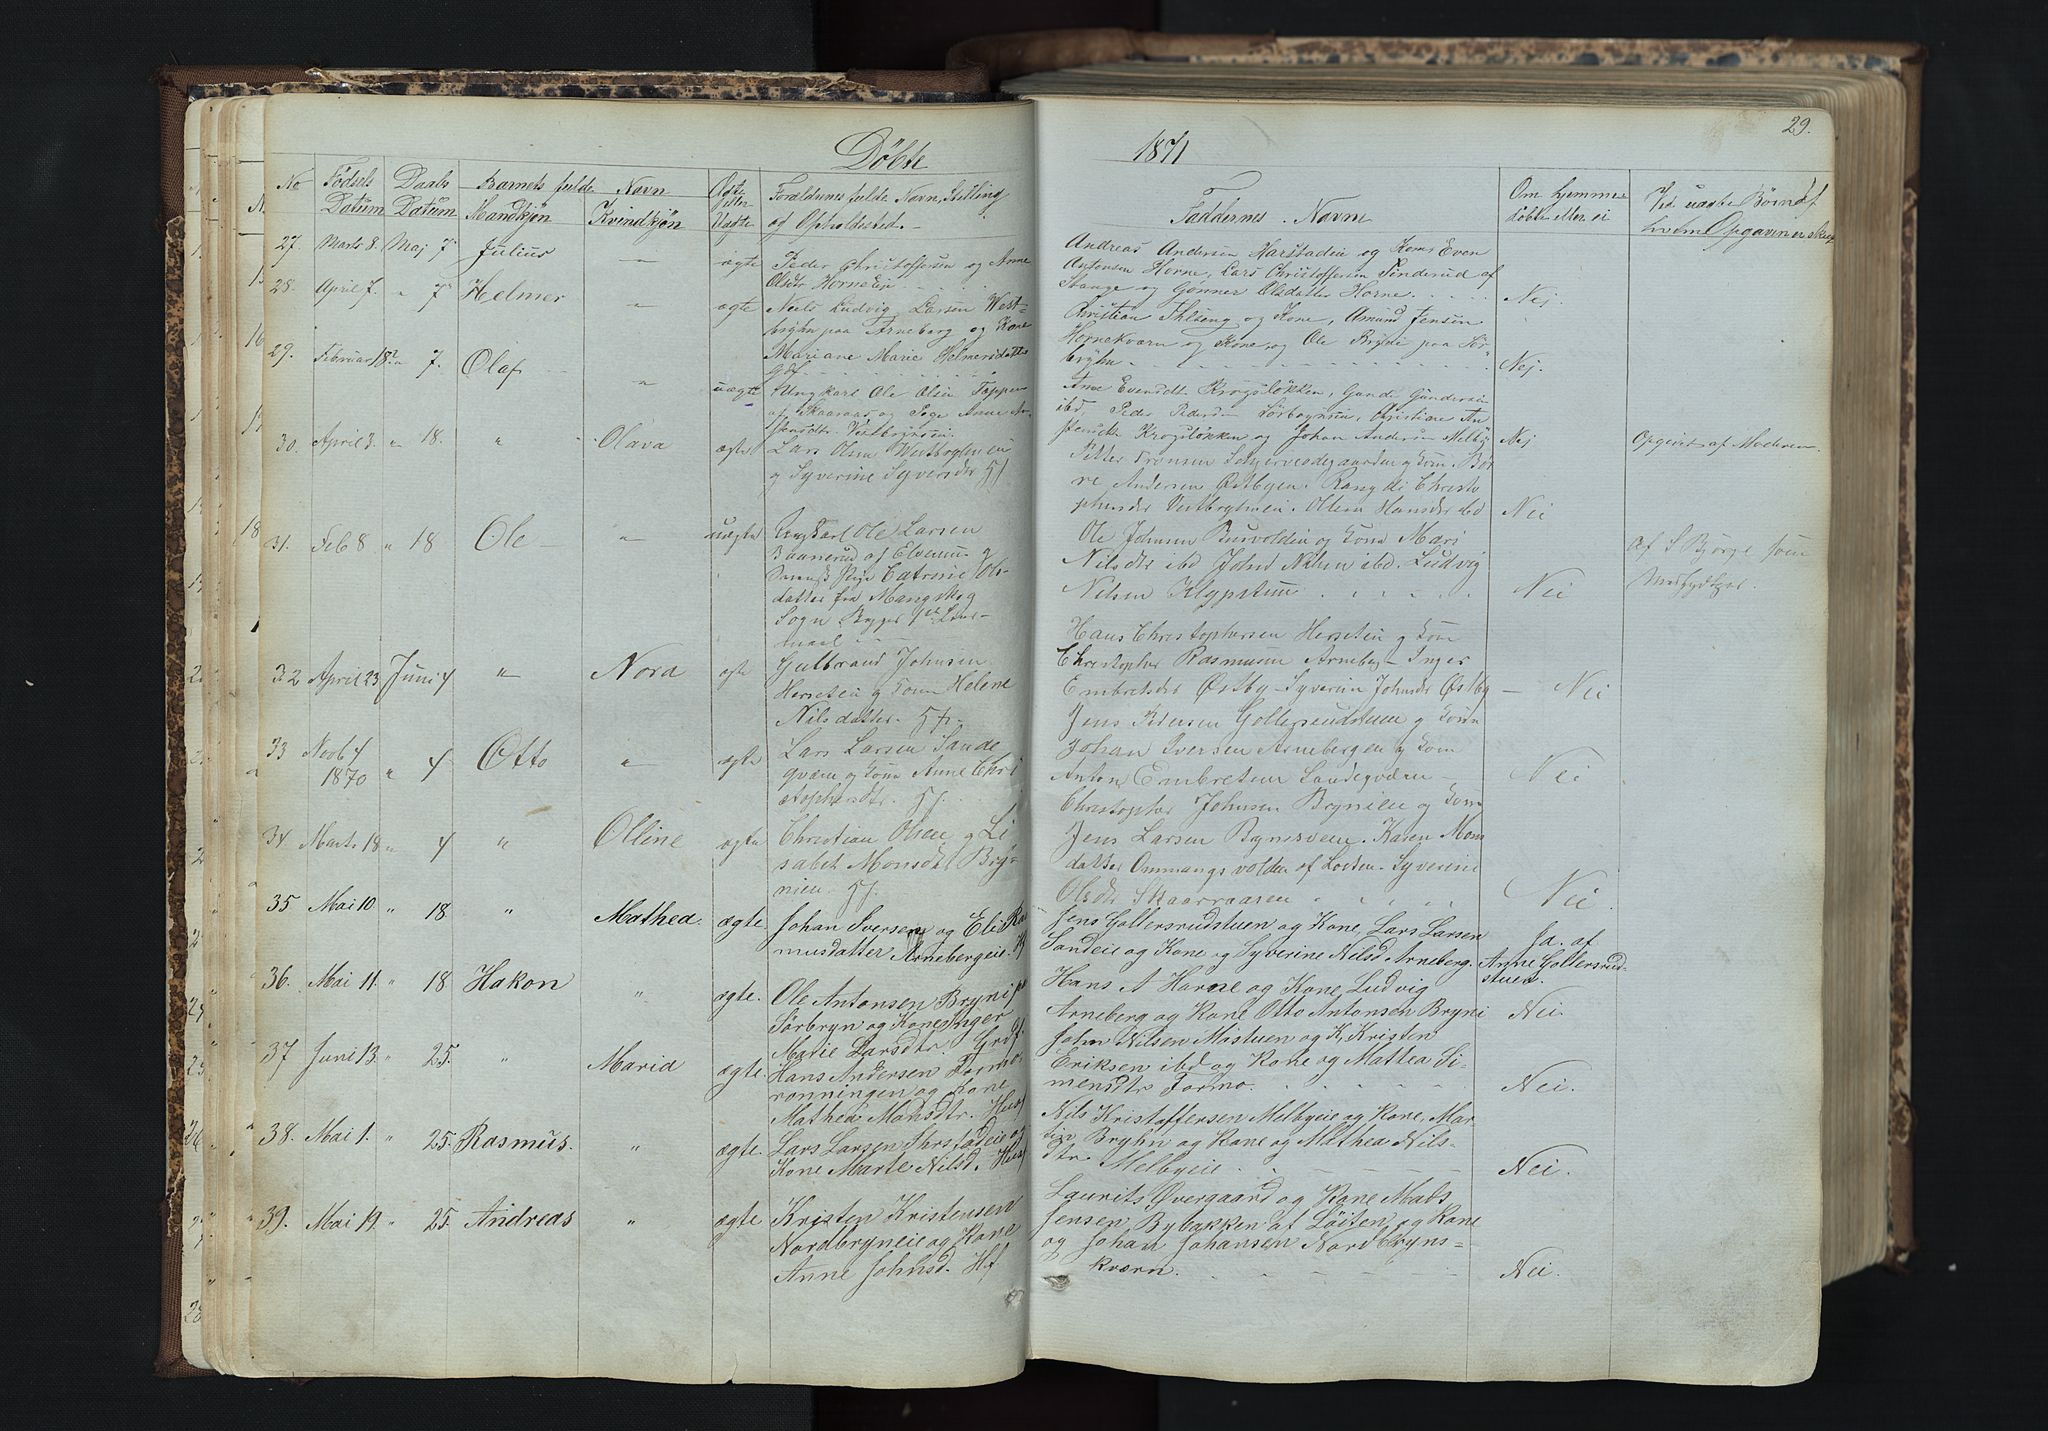 Döbte
1871
29.
No
Fødsels Datum
Daabs Datum
Barnets fulde Navn
Mandkjøn
Kvindkjøn
Ægte eller Uægte
Forældrenes fulde Navn, Stilling
og Opholdssted.
Faddernes Navne
Om hjemme-
döbt eller ei
Ved uægte Börn af
hvem Opgaven er skeet
27. Marts 8. Maj 7 Julius " ægte
Peder Christoffersen og Anne
Olsdtr Horneeie
Andreas Andersen Harstadeie og Kone, Even
Antonsen Horne, Lars Christoffersen Tinderud af
Stange og Gunner Olsdatter Horne.
Nej.
28. April 7. " 7 Helmer " ægte
Niels Ludvig Larsen West-
bryhn paa Arneberg og Kone
Mariane Marie Helmersdatter
Gdf.
Christian Ihlseng og Kone, Amund Jensen
Hornekværn og Kone, og Ole Bryhn paa Sör-
bryhn
Nej.
29. Februar 18 " 7. Olaf " uægte
Ungkarl Ole Olsen Toppen
af Skaaraas og Pige Anne
Vestbryneie.
Ane Evensdt Krogsløkken, Gunde Gundersen
ibd, Peder Pedersen Sörbryneie, Christiane
Krogsløkken og Johan Andersen Melby
Nej
Opgivet af Moderen
30. April 3. " 18. " Olava ægte
Lars Olsen Westbryhneie
og Syverine Syversdtr Hf
Petter Tronsen og Kone.
Andersen Østbyeie. Christo
phersdtr Vestbryhneie. Oline Hansdtr ibd
Nei
31. Feb 8 " 18 Ole " uægte
Ungkarl Ole Larsen
Baanerud af Elverum og
Svensk Pige Catrine Ols-
datter fra Mangskog
Sogn
Ole Johnsen og Kone Mari
Nilsdtr ibd John Nilsen ibd. Ludvig
Nilsen
Nei
Af S Bjørge som
32 April 23 Juni 4 " Nora ægte
Gulbrand Johnsen
Herseteie og Kone Helene
Nilsdatter. Hf.
Hans Christophersen Herseteie og Kone
Christopher Rasmusen Arneberg - Inger
Embretsdtr Østby - Syverine Johnsdtr Østby
Nei
33 Novb 4 1870 " 4 Otto " ægte
Lars Larsen Sande
qværn og Kone Anne Chri
stophersdtr. Hf.
Jens Larsen Gollersrudstuen og Kone
Johan Iversen Arnebergeie og Kone
Anton Embretsen Sandeqværn -
Nei
34 Marts 18 " 4 " Olline ægte
Christian Olsen og Li
sabet Monsdtr Bry-
nieie. Hf.
Christopher Johnsen Brynieie og Kone
Jens Larsen Bryneseie. Karen Mons
datter Ommangsvolden af Løiten. Syverine
Olsdtr Skaaraasen
Nei
35 Mai 10 " 18 " Mathea. ægte
Johan Iversen og Eli Ras
musdatter Arnebergeie. Hf
Jens Gollersrudstuen og Kone, Lars Larsen
Sandeie og Kone og Syverine Nilsd. Arneberg.
Ja. af
Anne Gollersrud-
stuen.
36. Mai 11. " 18 Hakon " ægte.
Ole Antonsen Bryni paa
Sörbryn og Kone Inger
Marie Larsdtr. Grdf.
Hans A Horne og Kone, Ludvig
Arneberg og Kone Otto Antonsen Bryni
Nei.
37 Juni 13. " 25. " Maria ægte.
Hans Andersen Formo-
rönningen og Kone
Mathea Monsdtr. Husf
John Nilsen Mostuen og K, Kristen
Eriksen ibd og Kone og Mattea Si-
mensdtr Formo.
Nei.
38. Mai 1. " 25. Rasmus. " ægte.
Lars Larsen Harstadeie og
Kone Marte Nilsd. Husf
Nils Kristoffersen Melbyeie og Kone, Mar-
tin Bryhn og Kone og Mathea Nils-
dtr. Melbyeie
Nei.
39. Mai 19. " 25. Andreas " ægte
Kristen Kristensen
Nordbryneie og Kone
Anne Johnsd. Hf.
Laurits Övergaard og Kone Mats
Jensen Bybakken af Löiten og Kone
og Johan Johansen Nordbryns-
kværn.
Nei.